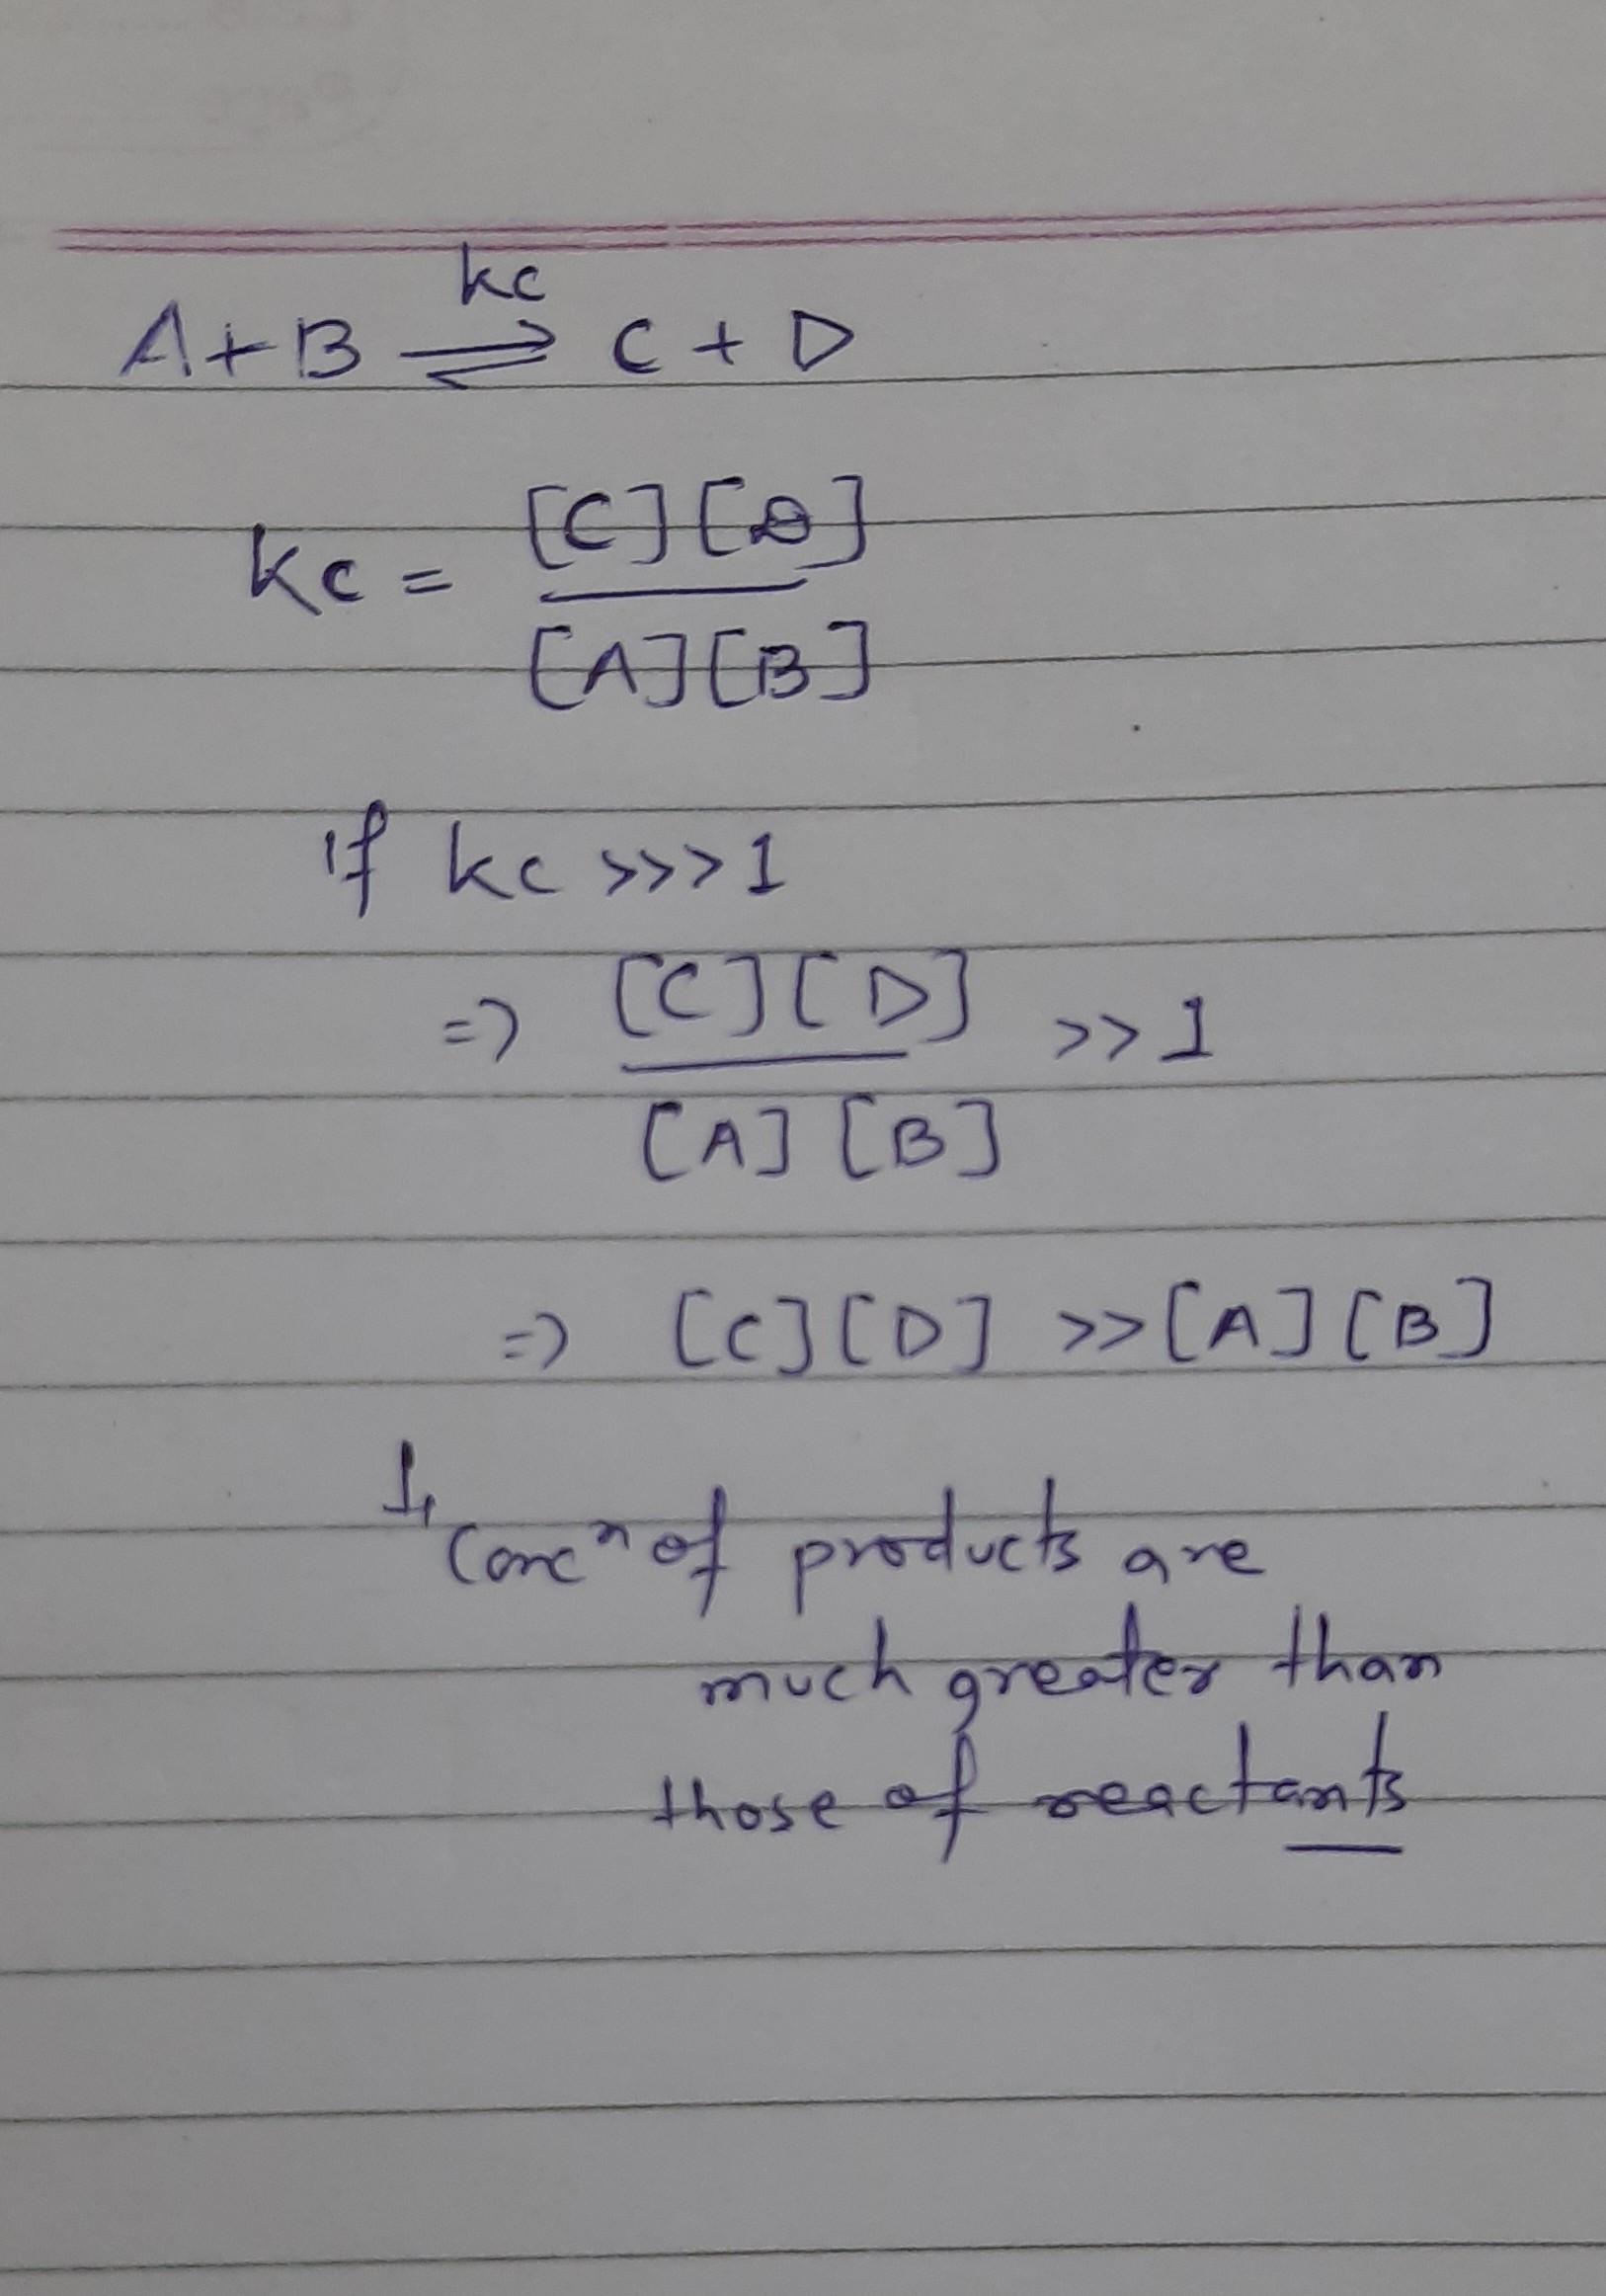 kc
A + B ⇌ C + D
kc = [C][D]
[A][B]
if kc >>> 1
=> [C][D] >> 1
[A][B]
=> [C][D] >> [A][B]
↳ Concⁿ of products are
much greater than
those of reactants